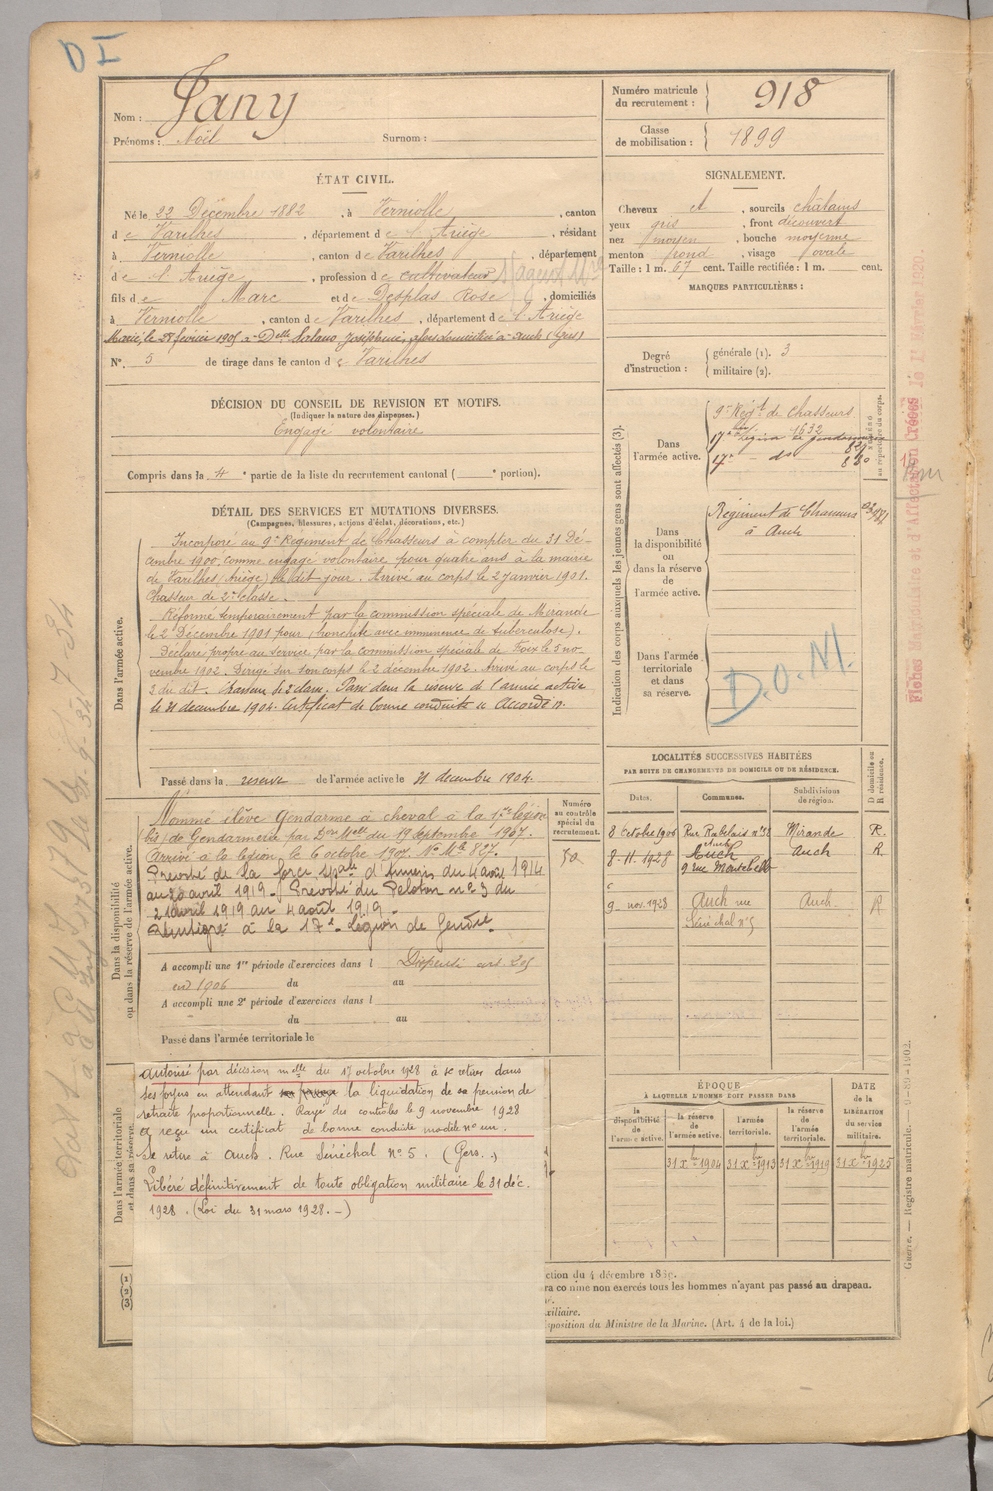 D I
Nom : Jany
Prénoms : Noël Surnom :
Numéro matricule du recrutement : 918
Classe de mobilisation : 1899
ÉTAT CIVIL.
Né le 22 Décembre 1882, à Verniolle, canton
de Varilhes, département de l'Ariège, résidant
à Verniolle, canton de Varilhes, département
de l'Ariège, profession de cultivateur
fils de Marc et de Desplas Rose, domiciliés
à Verniolle, canton de Varilhes, département de l'Ariège
Marié le 28 février 1905 à Delle Joséphine, domiciliée à Auch (Gers)
N° 5 de tirage dans le canton de Varilhes
SIGNALEMENT.
Cheveux et, sourcils châtains
yeux gris, front découvert
nez moyen, bouche moyenne
menton rond, visage ovale
Taille : 1 m. 67 cent. Taille rectifiée : 1 m. cent.
MARQUES PARTICULIÈRES :
Degré d'instruction : générale (1). 3
militaire (2).
DÉCISION DU CONSEIL DE REVISION ET MOTIFS.
(Indiquer la nature des dispenses.)
Engagé volontaire
Compris dans la 4e partie de la liste du recrutement cantonal (e portion).
DÉTAIL DES SERVICES ET MUTATIONS DIVERSES.
(Campagnes, blessures, actions d'éclat, décorations, etc.)
Dans l'armée active.
Incorporé au 9e Régiment de Chasseurs à compter du 31 Dé-
cembre 1900, comme engagé volontaire pour quatre ans à la mairie
de Varilhes (Ariège) le dit jour. Arrivé au corps le 2 janvier 1901.
Chasseur de 2e classe.
Réformé temporairement par la commission spéciale de Mirande
le 2 Décembre 1901 pour (bronchite avec imminence de tuberculose).
Déclaré propre au service par la commission spéciale de Foix le 5 no-
vembre 1902. Dirigé sur son corps le 2 décembre 1902. Arrivé au corps le
3 du dit. Chasseur de 2e classe. Passé dans la réserve de l'armée active
le 31 décembre 1904. Certificat de bonne conduite Accordé.
Passé dans la réserve de l'armée active le 31 décembre 1904.
Indication des corps auxquels les jeunes gens sont affectés (3).
Dans l'armée active.
9e Régt de Chasseurs
1632
17e légion de gendarmerie
827
17e do
830
NUMÉRO au répertoire du corps.
Dans la disponibilité ou dans la réserve de l'armée active.
Régiment de Chasseurs
à Auch
Dans l'armée territoriale et dans sa réserve.
D.O.M.
Fiches Matricule et d'Affectation Créées le 1er Février 1920.
LOCALITÉS SUCCESSIVES HABITÉES
PAR SUITE DE CHANGEMENTS DE DOMICILE OU DE RÉSIDENCE.
Dates. Communes. Subdivisions de région. D domicile ou R résidence.
8 Octobre 1906 Rue Rabelais n° 32 Auch Mirande R.
8-11-1928 Auch 9 rue Montebello Auch R
9 nov. 1928 Auch rue Sénéchal n° 5 Auch R
Dans la disponibilité ou dans la réserve de l'armée active.
Numéro au contrôle spécial du recrutement.
Nommé élève Gendarme à cheval à la 17e légion
(bis) de Gendarmerie par Don Melle du 19 Septembre 1907.
Arrivé à la légion le 6 octobre 1907. N° Mle 827.
Prévôté de la force d'Amiens du 4 août 1914
au 20 avril 1919. Prévôté du Peloton n° 3 du
21 avril 1919 au 4 août 1919.
Réintégré à la 17e Légion de Gendrie.
A accompli une 1re période d'exercices dans l Dispensé art 205
en 1906 du au
A accompli une 2e période d'exercices dans l
du au
Passé dans l'armée territoriale le
Dans l'armée territoriale et dans sa réserve.
Autorisé par décision melle du 17 octobre 1928 à se retirer dans
ses foyers en attendant la liquidation de sa pension de
retraite proportionnelle. Rayé des contrôles le 9 novembre 1928
et reçu un certificat de bonne conduite modèle n° un.
Se retire à Auch. Rue Sénéchal N° 5. (Gers.)
Libéré définitivement de toute obligation militaire le 31 déc.
1928. (Loi du 31 mars 1928.-)
ÉPOQUE
À LAQUELLE L'HOMME DOIT PASSER DANS
la disponibilité de l'armée active. la réserve de l'armée active. l'armée territoriale. la réserve de l'armée territoriale. DATE de la LIBÉRATION du service militaire.
31 Xbre 1904 31 Xbre 1913 31 Xbre 1919 31 Xbre 1925
(1)
(2)
(3)
ction du 4 décembre
ra comme non exercés tous les hommes n'ayant pas passé au drapeau.
xiliaire.
sposition du Ministre de la Marine. (Art. 4 de la loi.)
Guerre. — Registre matricule.